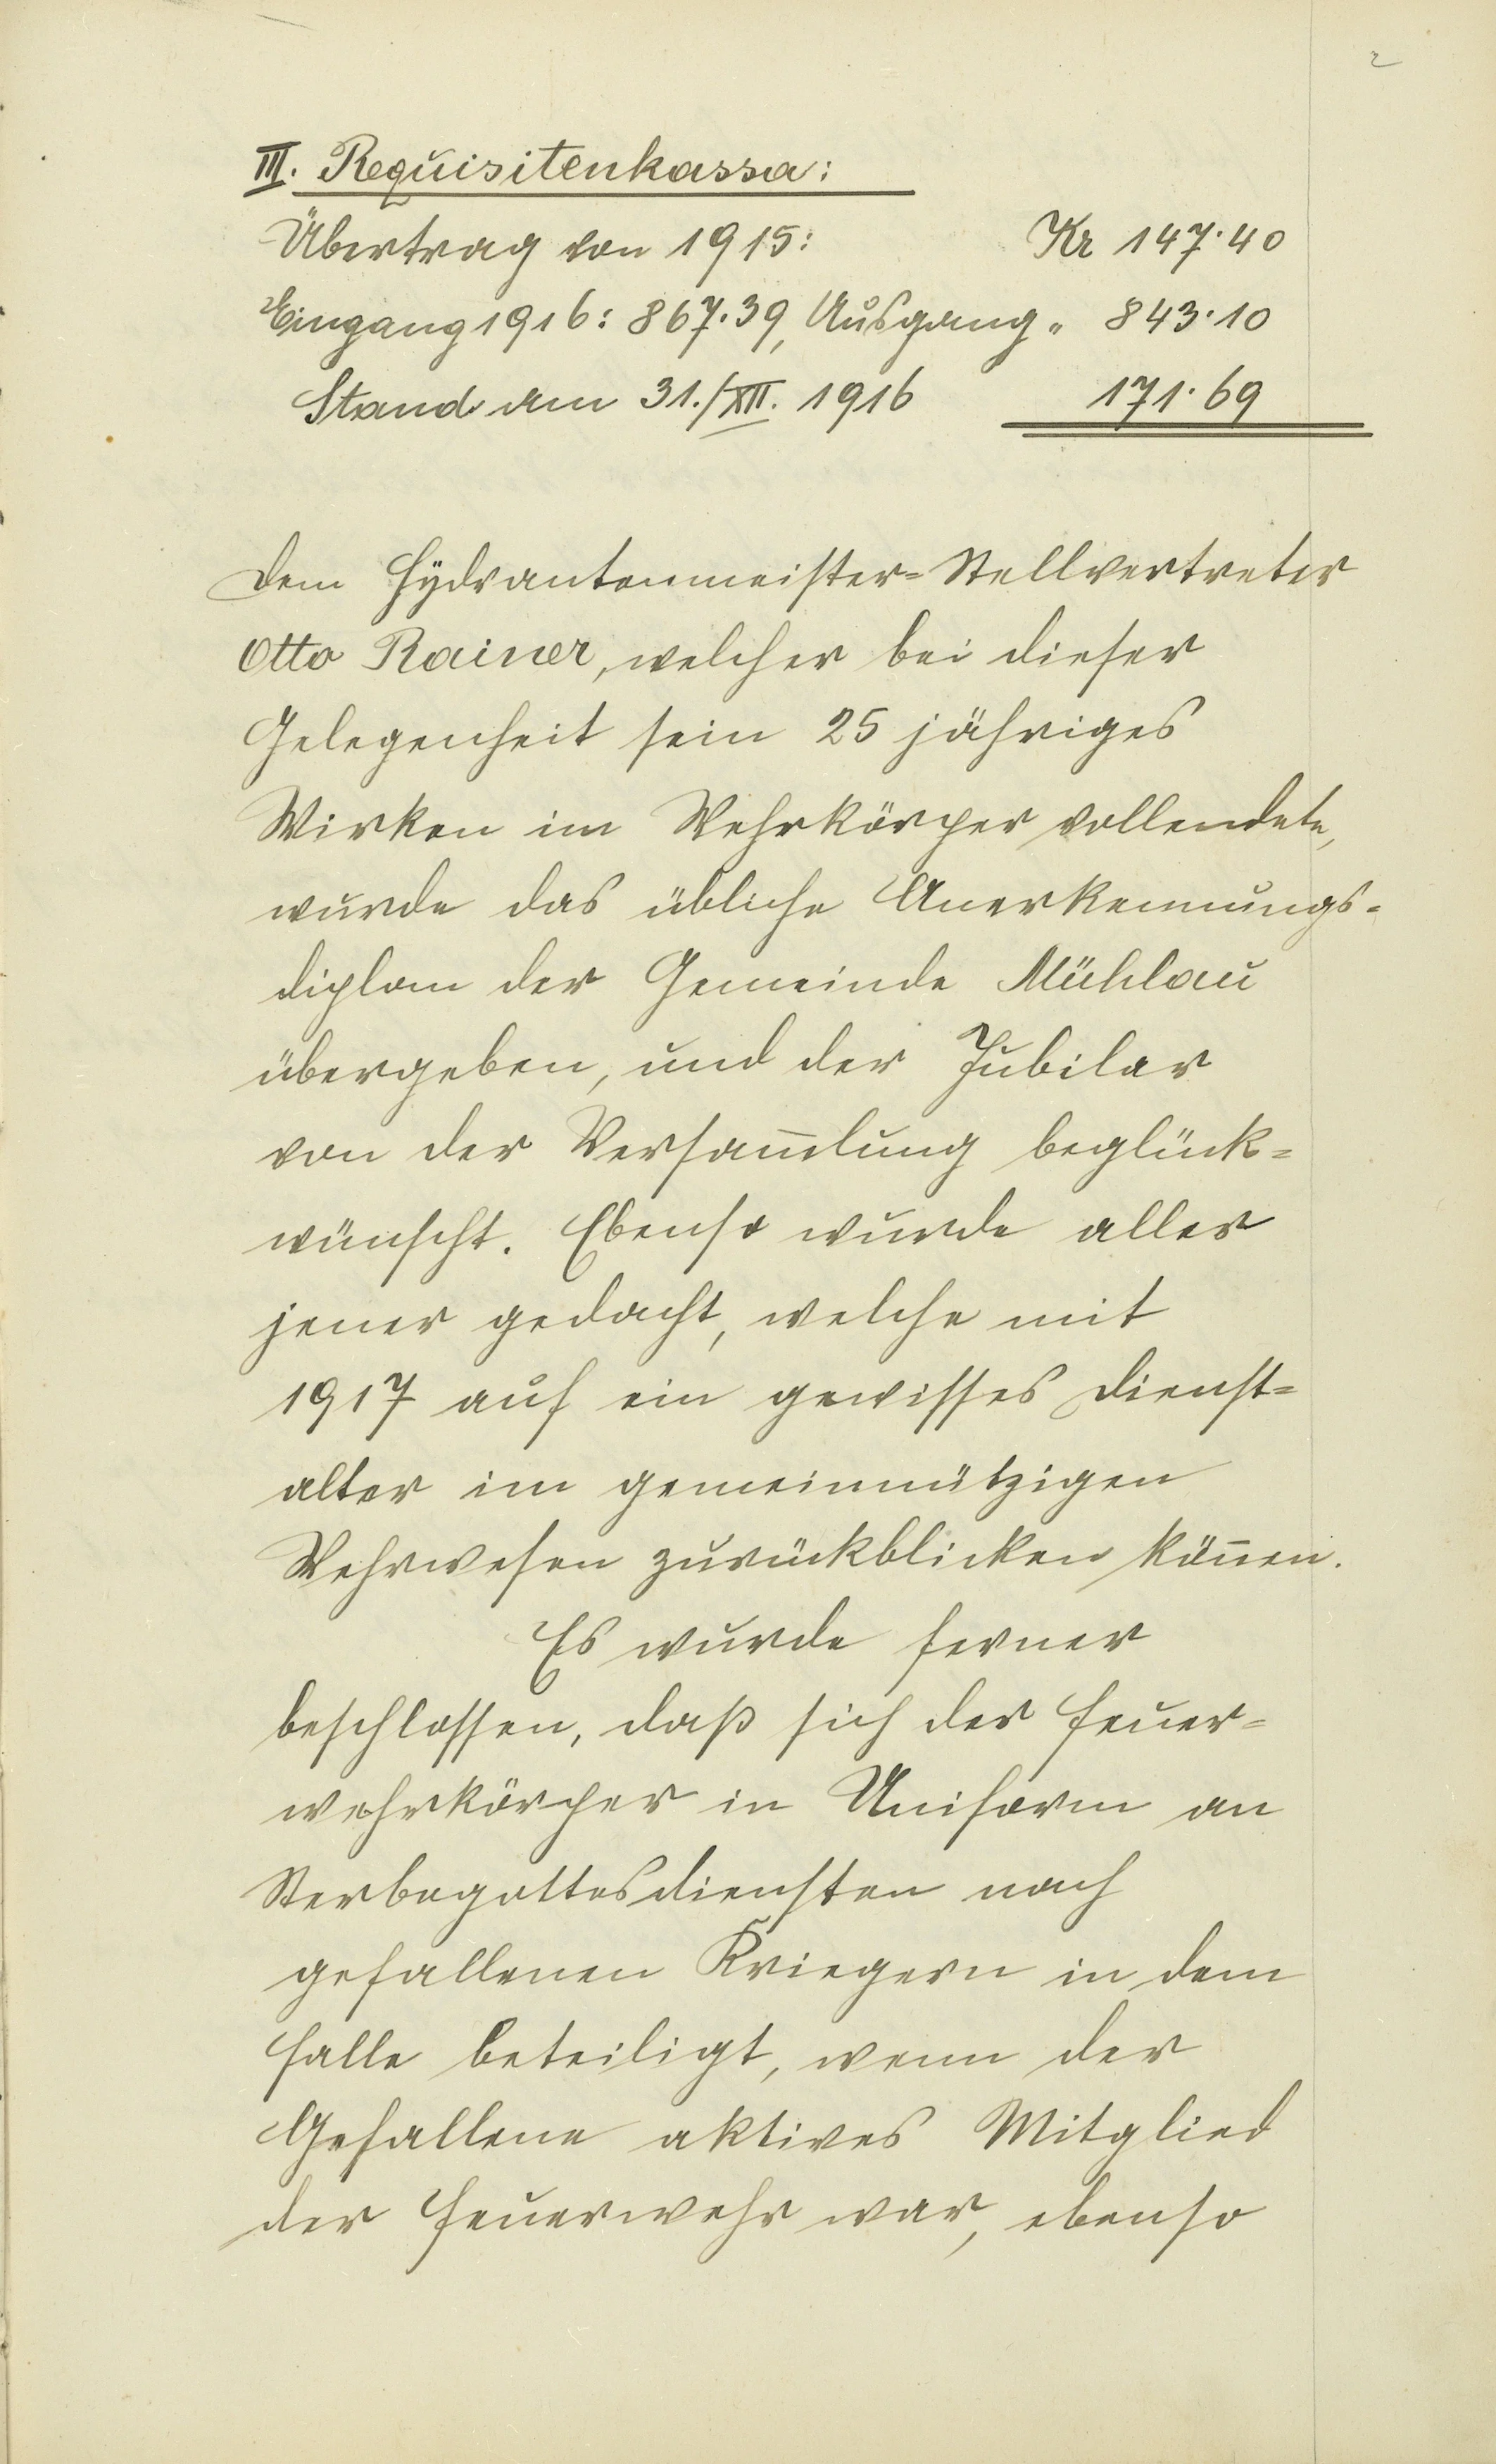 2
III. Requisitenkassa:
Übertrag von 1915: Kr 147·40
Eingang 1916: 867·39, Ausgang „ 843·10
Stand am 31./XII. 1916 171·69
Dem Hydrantenmeister=Stellvertreter
Otto Rainer, welcher bei dieser
Gelegenheit sein 25 jähriges
Wirken im Wehrkörper vollendete,
wurde das übliche Anerkennungs=
diplom der Gemeinde Mühlau
übergeben, und der Jubilar
von der Versam̅lung beglück=
wünscht. Ebenso wurde aller
jener gedacht, welche mit
1917 auf ein gewisses Dienst=
alter im gemeinnützigen
Wehrwesen zurückblicken kön̅en.
Es wurde ferner
beschlossen, daß sich der Feuer=
wehrkörper in Uniform an
Sterbegottesdiensten nach
gefallenen Kriegern in dem
Falle beteiligt, wenn der
Gefallene aktives Mitglied
der Feuerwehr war, ebenso